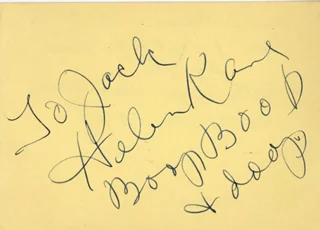 To Jack
Helen Kane
Boop Boop
a doop